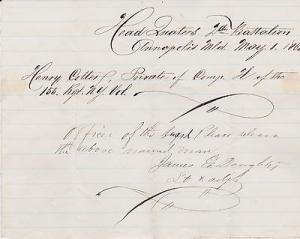 Head Quaters 2th Battalion
Annapolis Md. May 1. 186
Henry Colter, Private of Comp. H of the
155. Regt. N.Y. Vol.
Office of the Guard Please release
the above named man
James E Doughty
Lt & adjt